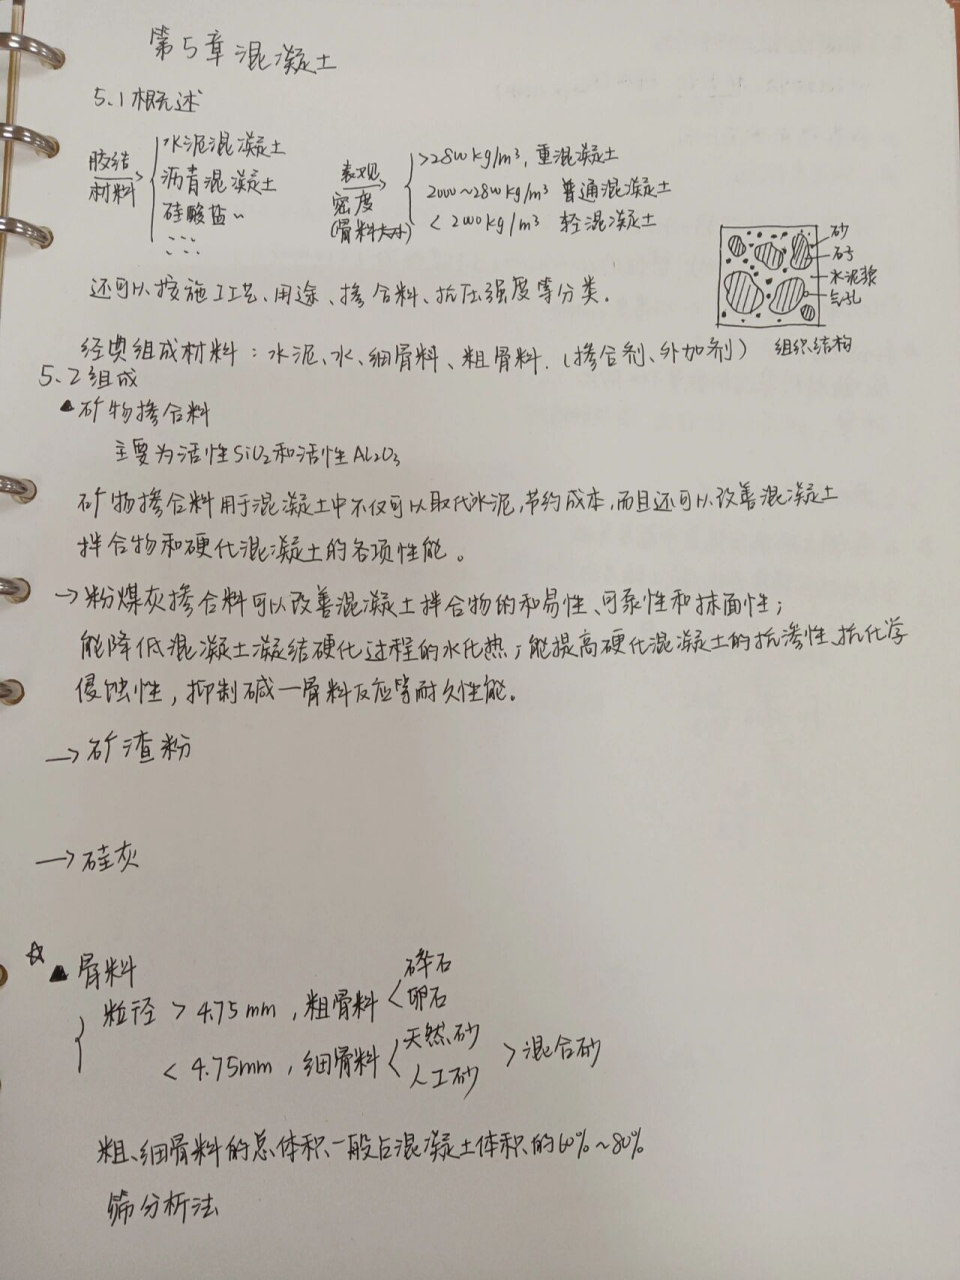 第5章混凝土
5.1概述
胶结材料 { 水泥混凝土
沥青混凝土
硅酸盐〃
⋯
表观密度 (骨料大小) { >2800kg/m³, 重混凝土
2000~2800kg/m³ 普通混凝土
<2000kg/m³ 轻混凝土
砂
石子
水泥浆
气孔
组织结构
还可以按施工工艺、用途、掺合料、抗压强度等分类.
经典组成材料：水泥、水、细骨料、粗骨料.（掺合剂、外加剂）
5.2组成
▲矿物掺合料
主要为活性SiO₂和活性Al₂O₃
矿物掺合料用于混凝土中不仅可以取代水泥,节约成本,而且还可以改善混凝土
拌合物和硬化混凝土的各项性能。
→粉煤灰掺合料可以改善混凝土拌合物的和易性、可泵性和抹面性；
能降低混凝土凝结硬化过程的水化热；能提高硬化混凝土的抗渗性、抗化学
侵蚀性，抑制碱—骨料反应等耐久性能.
→矿渣粉
→硅灰
☆▲骨料
{ 粒径 > 4.75mm，粗骨料 < 碎石
卵石
< 4.75mm，细骨料 < 天然砂
人工砂 > 混合砂
粗、细骨料的总体积一般占混凝土体积的60%~80%
筛分析法